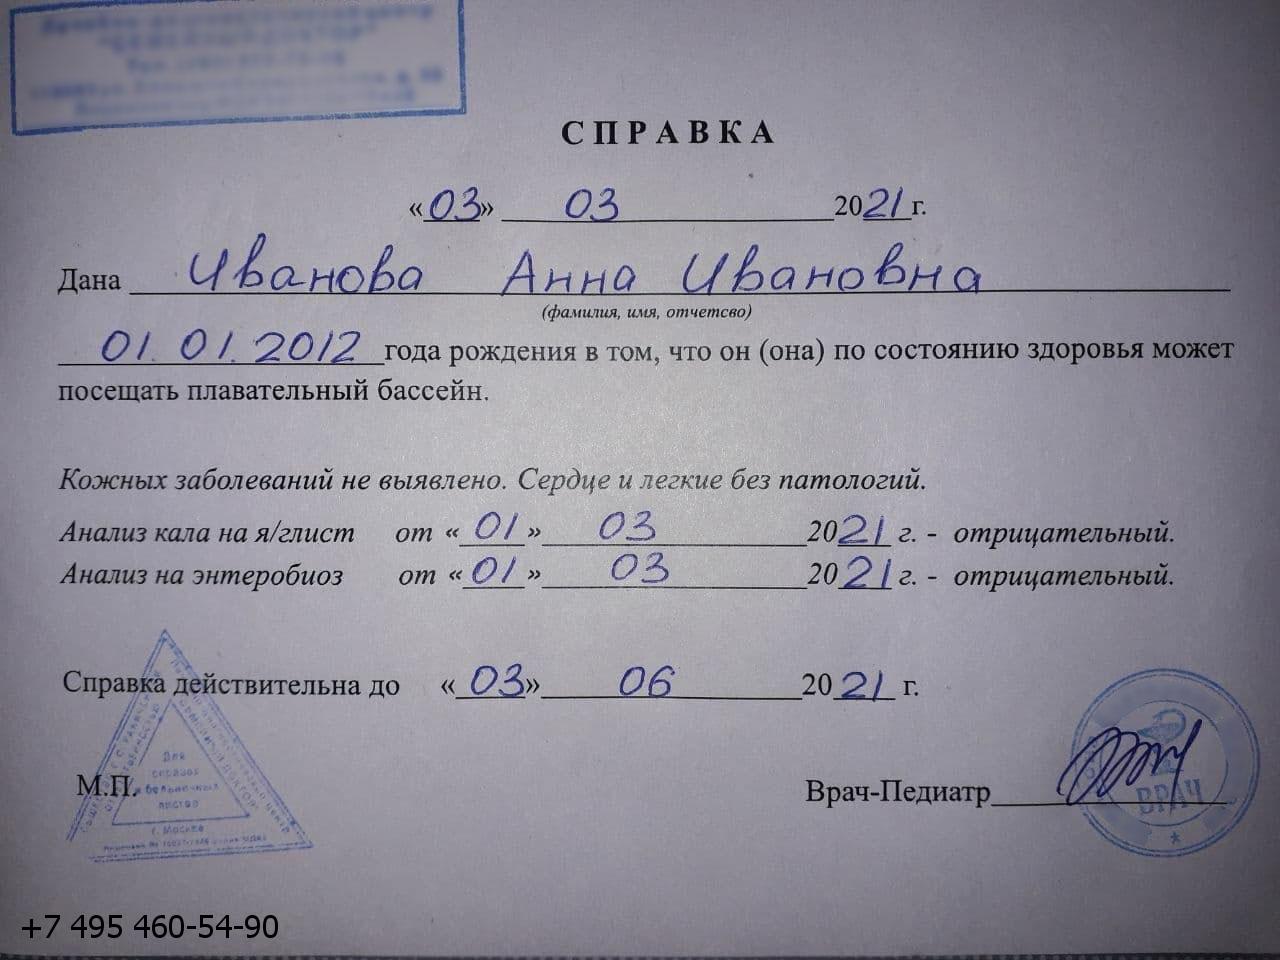 СПРАВКА
«03» 03 2021 г.
Дана Иванова Анна Ивановна
(фамилия, имя, отчетсво)
01.01.2012 года рождения в том, что он (она) по состоянию здоровья может
посещать плавательный бассейн.
Кожных заболеваний не выявлено. Сердце и легкие без патологий.
Анализ кала на я/глист от «01» 03 2021 г. - отрицательный.
Анализ на энтеробиоз от «01» 03 2021 г. - отрицательный.
Справка действительна до «03» 06 2021 г.
Для
справок
и больничных
листов
г. Москва
М.П.
Врач-Педиатр
ВРАЧ
+7 495 460-54-90